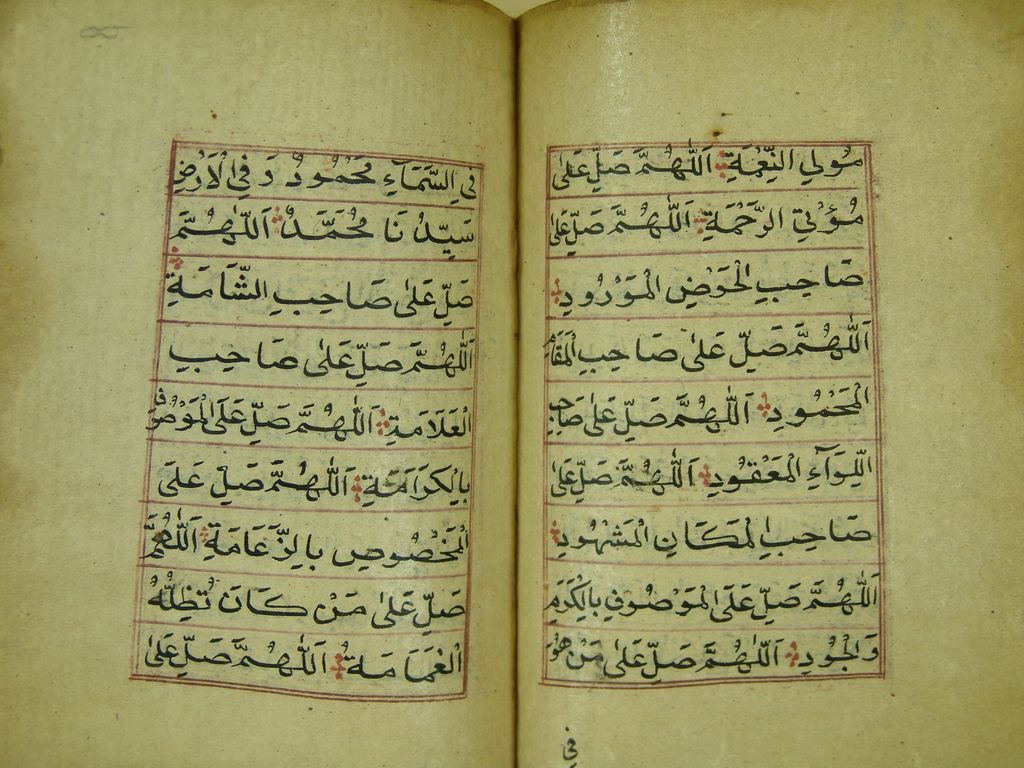 مُولِي النِّعْمَةِ اَللّٰهُمَّ صَلِّ عَلٰى
مُؤْتِي الرَّحْمَةِ اَللّٰهُمَّ صَلِّ عَلٰى
صَاحِبِ الْحَوْضِ الْمَوْرُودِ
اَللّٰهُمَّ صَلِّ عَلٰى صَاحِبِ الْمَقَامِ
الْمَحْمُودِ اَللّٰهُمَّ صَلِّ عَلٰى صَاحِبِ
اللِّوَآءِ الْمَعْقُودِ اَللّٰهُمَّ صَلِّ عَلٰى
صَاحِبِ الْمَكَانِ الْمَشْهُودِ
اَللّٰهُمَّ صَلِّ عَلَى الْمَوْصُوفِ بِالْكَرَمِ
وَالْجُودِ اَللّٰهُمَّ صَلِّ عَلٰى مَنْ هُوَ
فِي
فِي السَّمَآءِ مَحْمُودٌ وَفِي الْاَرْضِ
سَيِّدُنَا مُحَمَّدٌ اَللّٰهُمَّ
صَلِّ عَلٰى صَاحِبِ الشَّامَةِ
اَللّٰهُمَّ صَلِّ عَلٰى صَاحِبِ
الْعَلَامَةِ اَللّٰهُمَّ صَلِّ عَلَى الْمَوْصُوفِ
بِالْكَرَامَةِ اَللّٰهُمَّ صَلِّ عَلَى
الْمَخْصُوصِ بِالزَّعَامَةِ اَللّٰهُمَّ
صَلِّ عَلٰى مَنْ كَانَ تُظِلُّهُ
الْغَمَامَةُ اَللّٰهُمَّ صَلِّ عَلٰى